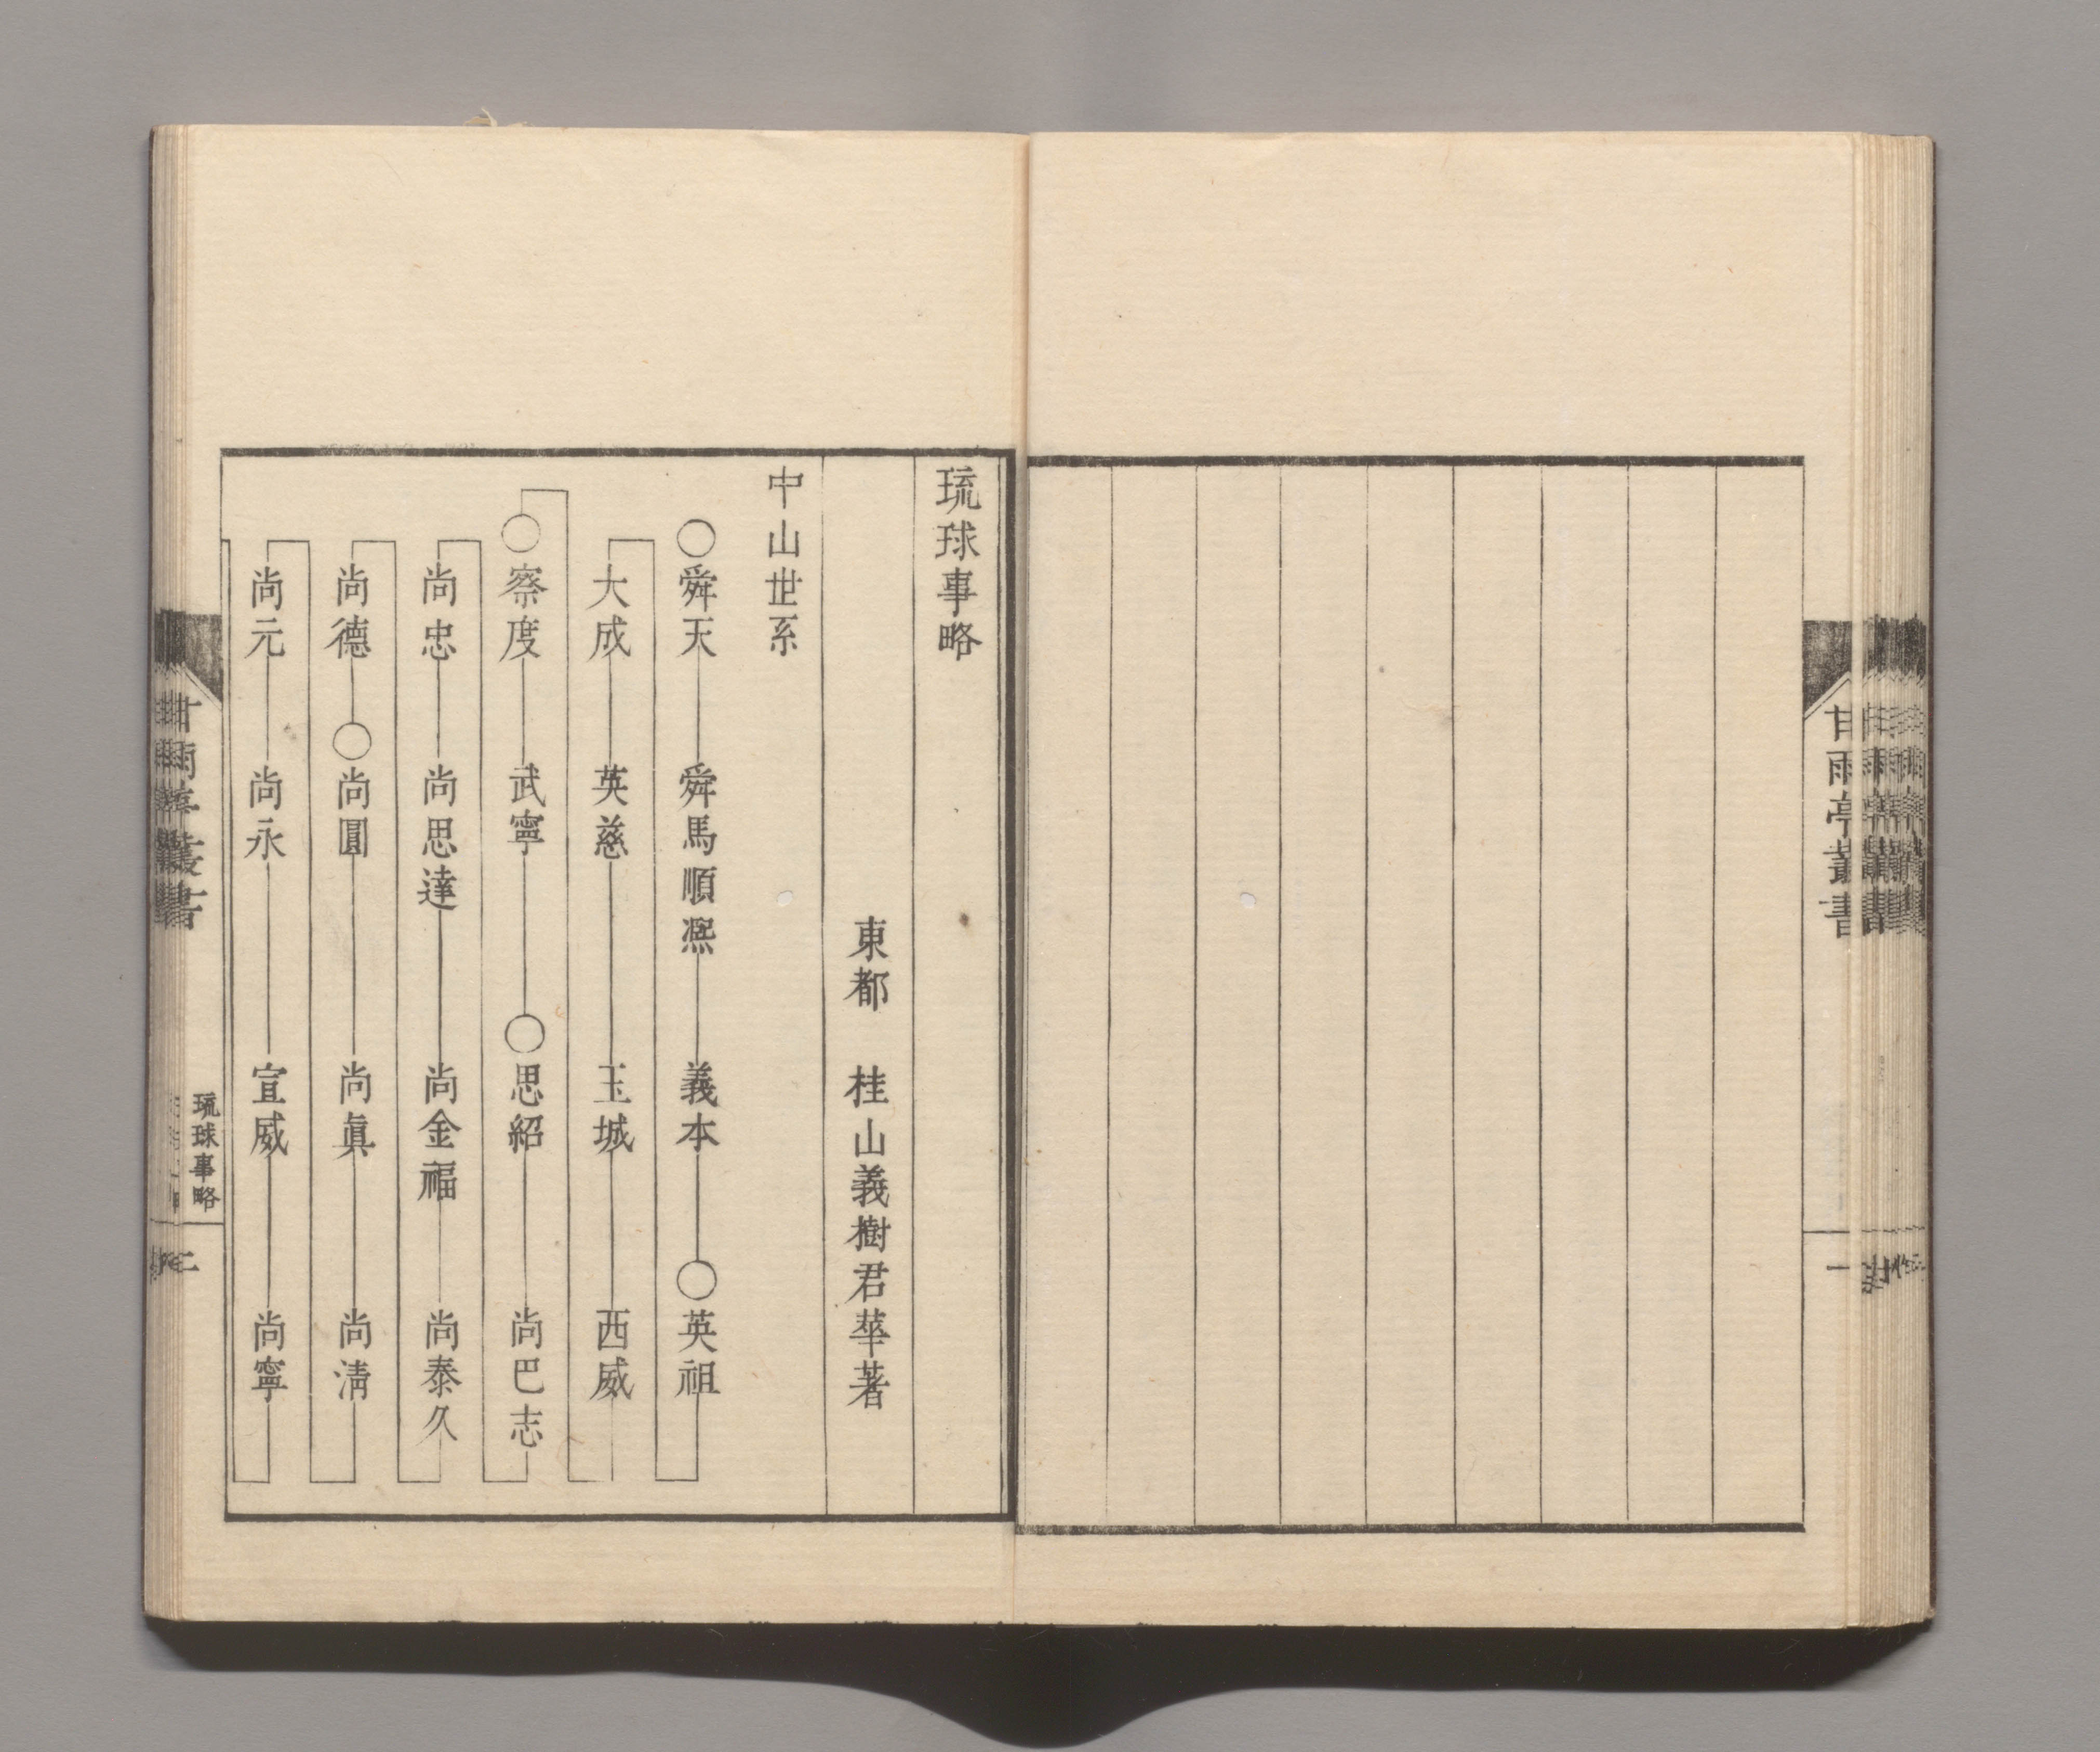 甘雨亭叢書
一
琉球事略
東都 桂山義樹君華著
中山世系
○舜天 舜馬順凞 義本 ○英祖
大成 英慈 玉城 西威
○察度 武寧 ○思紹 尚巴志
尚忠 尚思達 尚金福 尚泰久
尚德 ○尚圓 尚眞 尚淸
尚元 尚永 宣威 尚寧
甘雨亭叢書
琉球事略
二